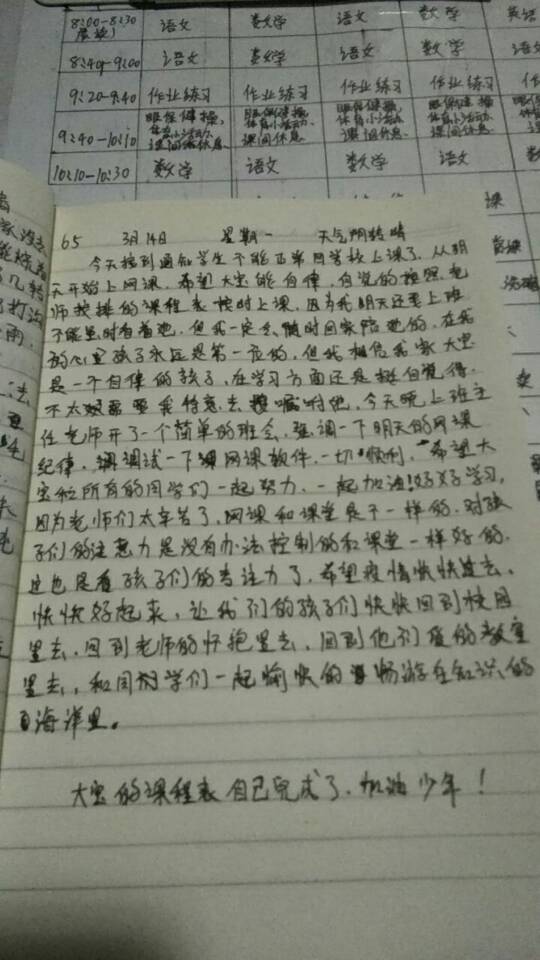 8:00-8:30 语文 数学 语文 数学 英语
8:40-9:00 语文 数学 语文 数学
9:20-9:40 作业练习 作业练习 作业练习 作业练习
9:40-10:10 眼保健操, 体育小活动, 课间休息 眼保健操, 体育小活动, 课间休息 眼保健操, 体育小活动, 课间休息 眼保健操, 体育小活动, 课间休息
10:10-10:30 数学 语文 数学 语文 数
课
65 3月14日 星期一 天气阴转晴
今天接到通知学生不能正常回学校上课了,从明
天开始上网课,希望大宝能自律,自觉的按照老
师按排的课程表按时上课,因为我明天还要上班
不能里时有着他,但我一定会随时回家陪他的,在我
的心里孩子永远是第一位的,但我相信我家大宝
是一个自律的孩子,在学习方面还是挺自觉得,
不太需要我特意去嘱咐他,今天晚上班主
任老师开了一个简单的班会,强调一下明天的网课
纪律,调试一下网课软件,一切顺利,希望大
宝和所有的同学们一起努力,一起加油!好好学习,
因为老师们太辛苦了,网课和课堂是不一样的,对孩
子们的注意力是没有办法控制的和课堂一样好的,
这也是看孩子们的专注力了,希望疫情快快过去,
快快好起来,让我们的孩子们快快回到校园
里去,回到老师的怀抱里去,回到他们的教室
里去,和同学们一起愉快的畅游在知识的
海洋里。
大宝的课程表自己完成了,加油少年!